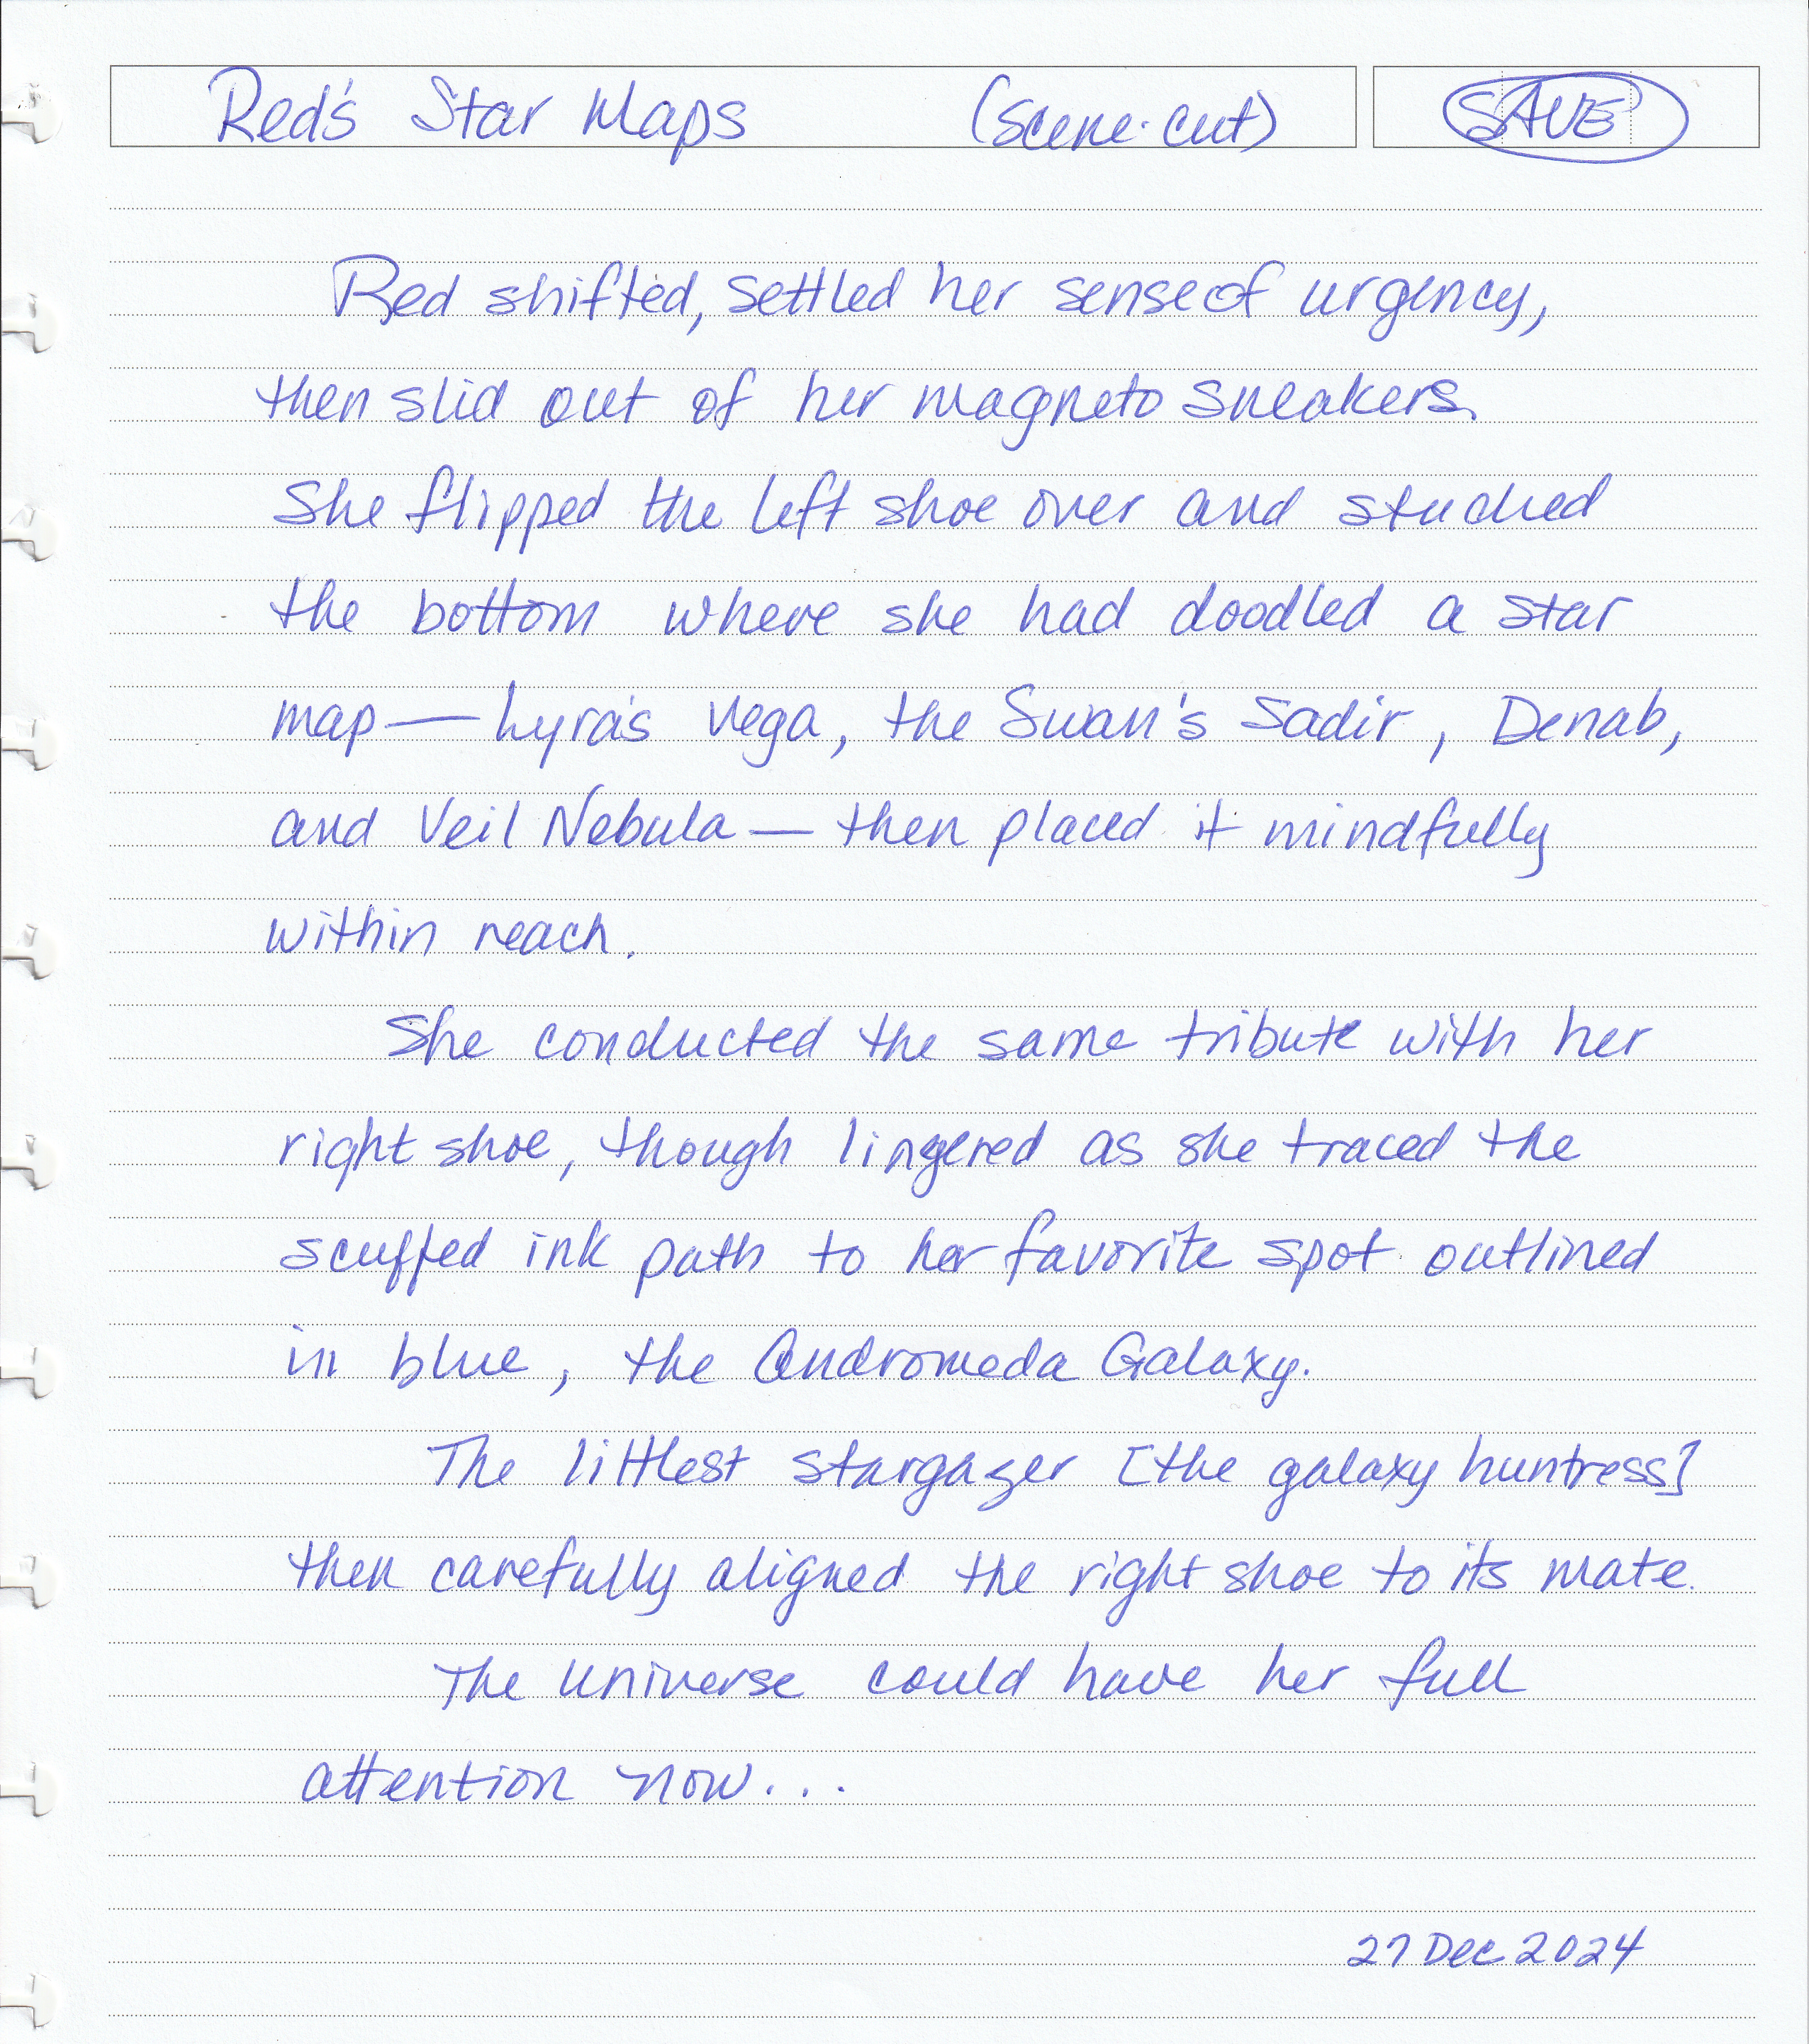 Red's Star Maps (scene-cut) SAVE
Red shifted, settled her sense of urgency,
then slid out of her magneto sneakers.
She flipped the left shoe over and studied
the bottom where she had doodled a star
map — Lyra's Vega, the Swan's Sadir, Denab,
and Veil Nebula — then placed it mindfully
within reach.
She conducted the same tribute with her
right shoe, though lingered as she traced the
scuffed ink path to her favorite spot outlined
in blue, the Andromeda Galaxy.
The littlest stargazer [the galaxy huntress]
then carefully aligned the right shoe to its mate.
The Universe could have her full
attention now...
27 Dec 2024